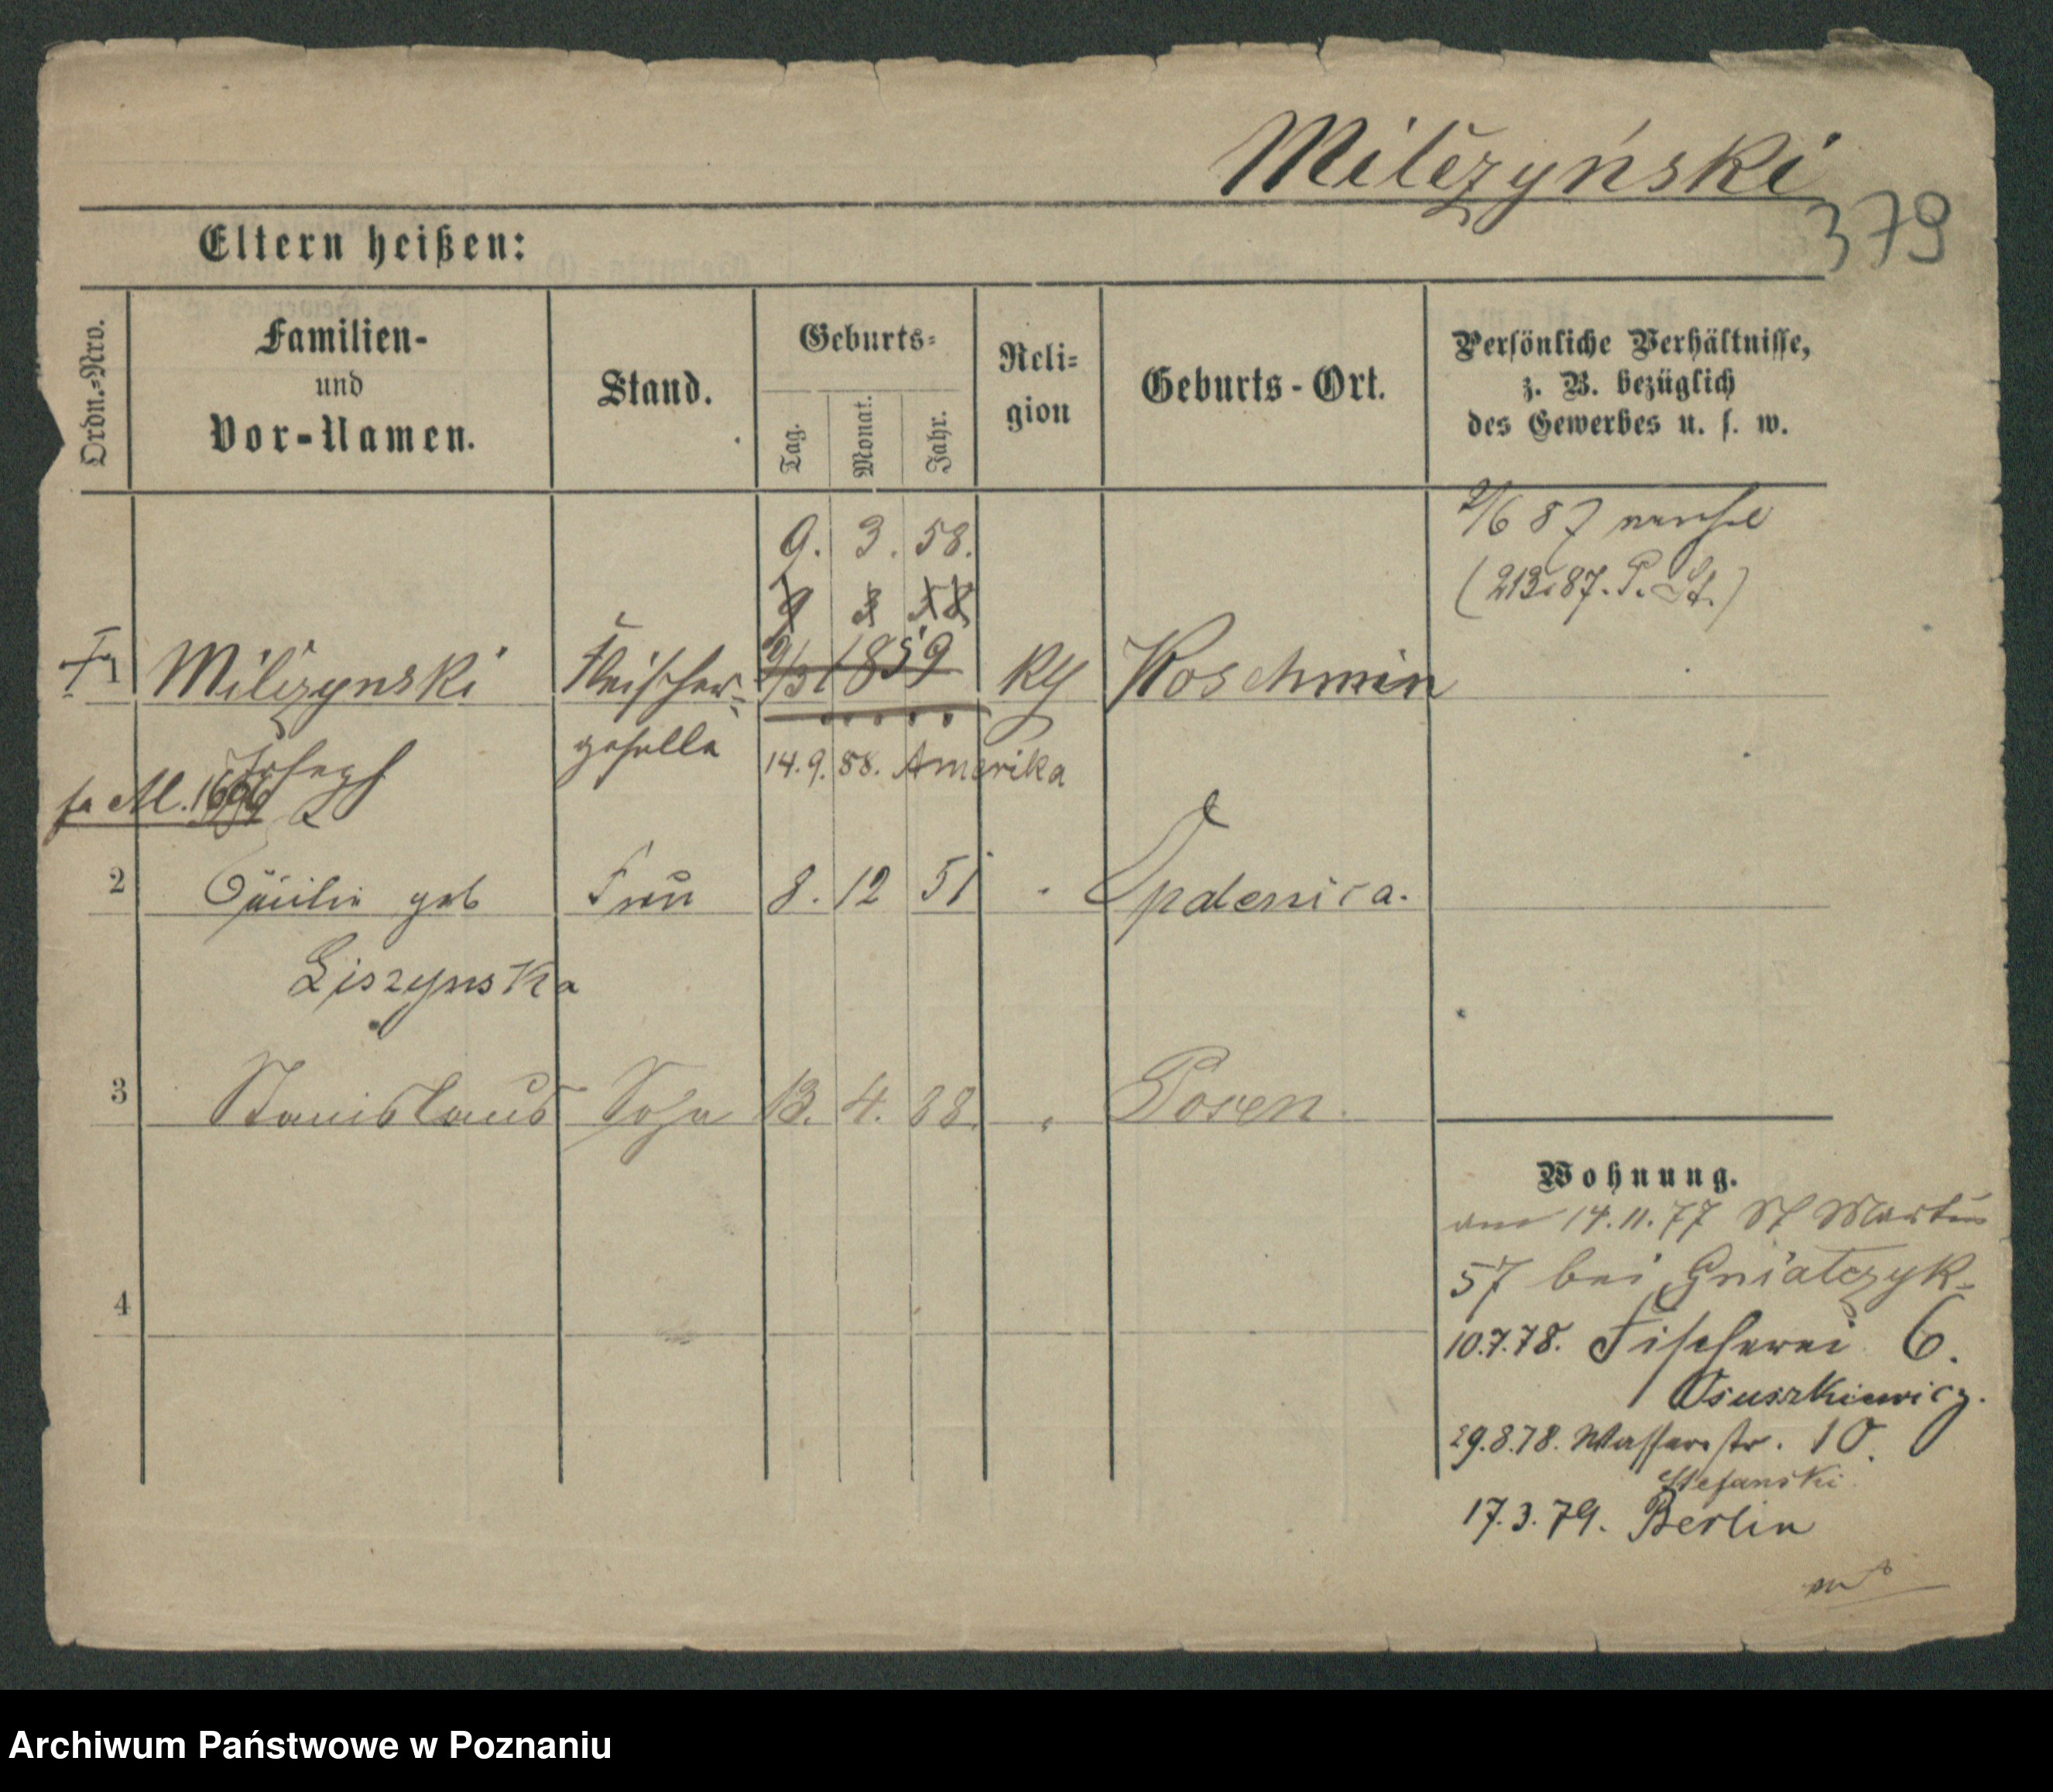 Milczyński
379
Eltern heißen:
Ordn.-Nro.
Familien-
und
Vor-Namen.
Stand.
Geburts-
Tag.
Monat.
Jahr.
Reli-
gion
Geburts-Ort.
Persönliche Verhältnisse,
z. B. bezüglich
des Gewerbes u. s. w.
9. 3. 58.
2/6 87
(213.87. P. St.)
9 3 58
1 Milczynski Fleischer- 9/3 1859 Kth Koschmin
Joseph geselle 14.9.88. Amerika
fa M. 1696
2 Cäcilie geb Frau 8. 12 51 " Opalenica.
Liszynska
3 Stanislaus Sohn 13. 4. 88. " Posen.
4
Wohnung.
am 14.11.77 St Martin
57 bei Gniatczyk-
10.7.78. Fischerei 6.
Osuszkiewicz.
29.8.78. Wasserstr. 10.
Stefanski.
17.3.79. Berlin
Archiwum Państwowe w Poznaniu